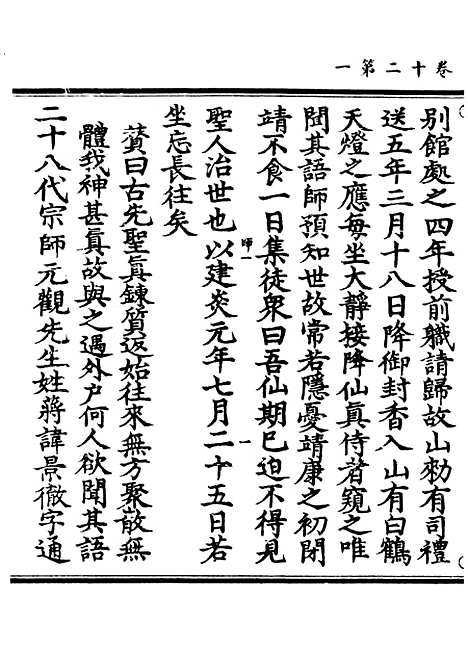 卷十二第一
別館處之四年授前職請歸故山勑有司禮
送五年三月十八日降御封香入山有白鶴
天燈之應每坐大靜接降仙真侍者窺之唯
聞其語師預知世故常若隱憂靖康之初閉
靖不食一日集徒衆曰吾仙期已迫不得見
聖人治世也以建炎元年七月二十五日若
師一
一
坐忘長往矣
贊曰古先聖真鍊質返始往來無方聚散無
體我神甚真故與之遇外户何人欲聞其語
二十八代宗師元觀先生姓蔣諱景徹字通